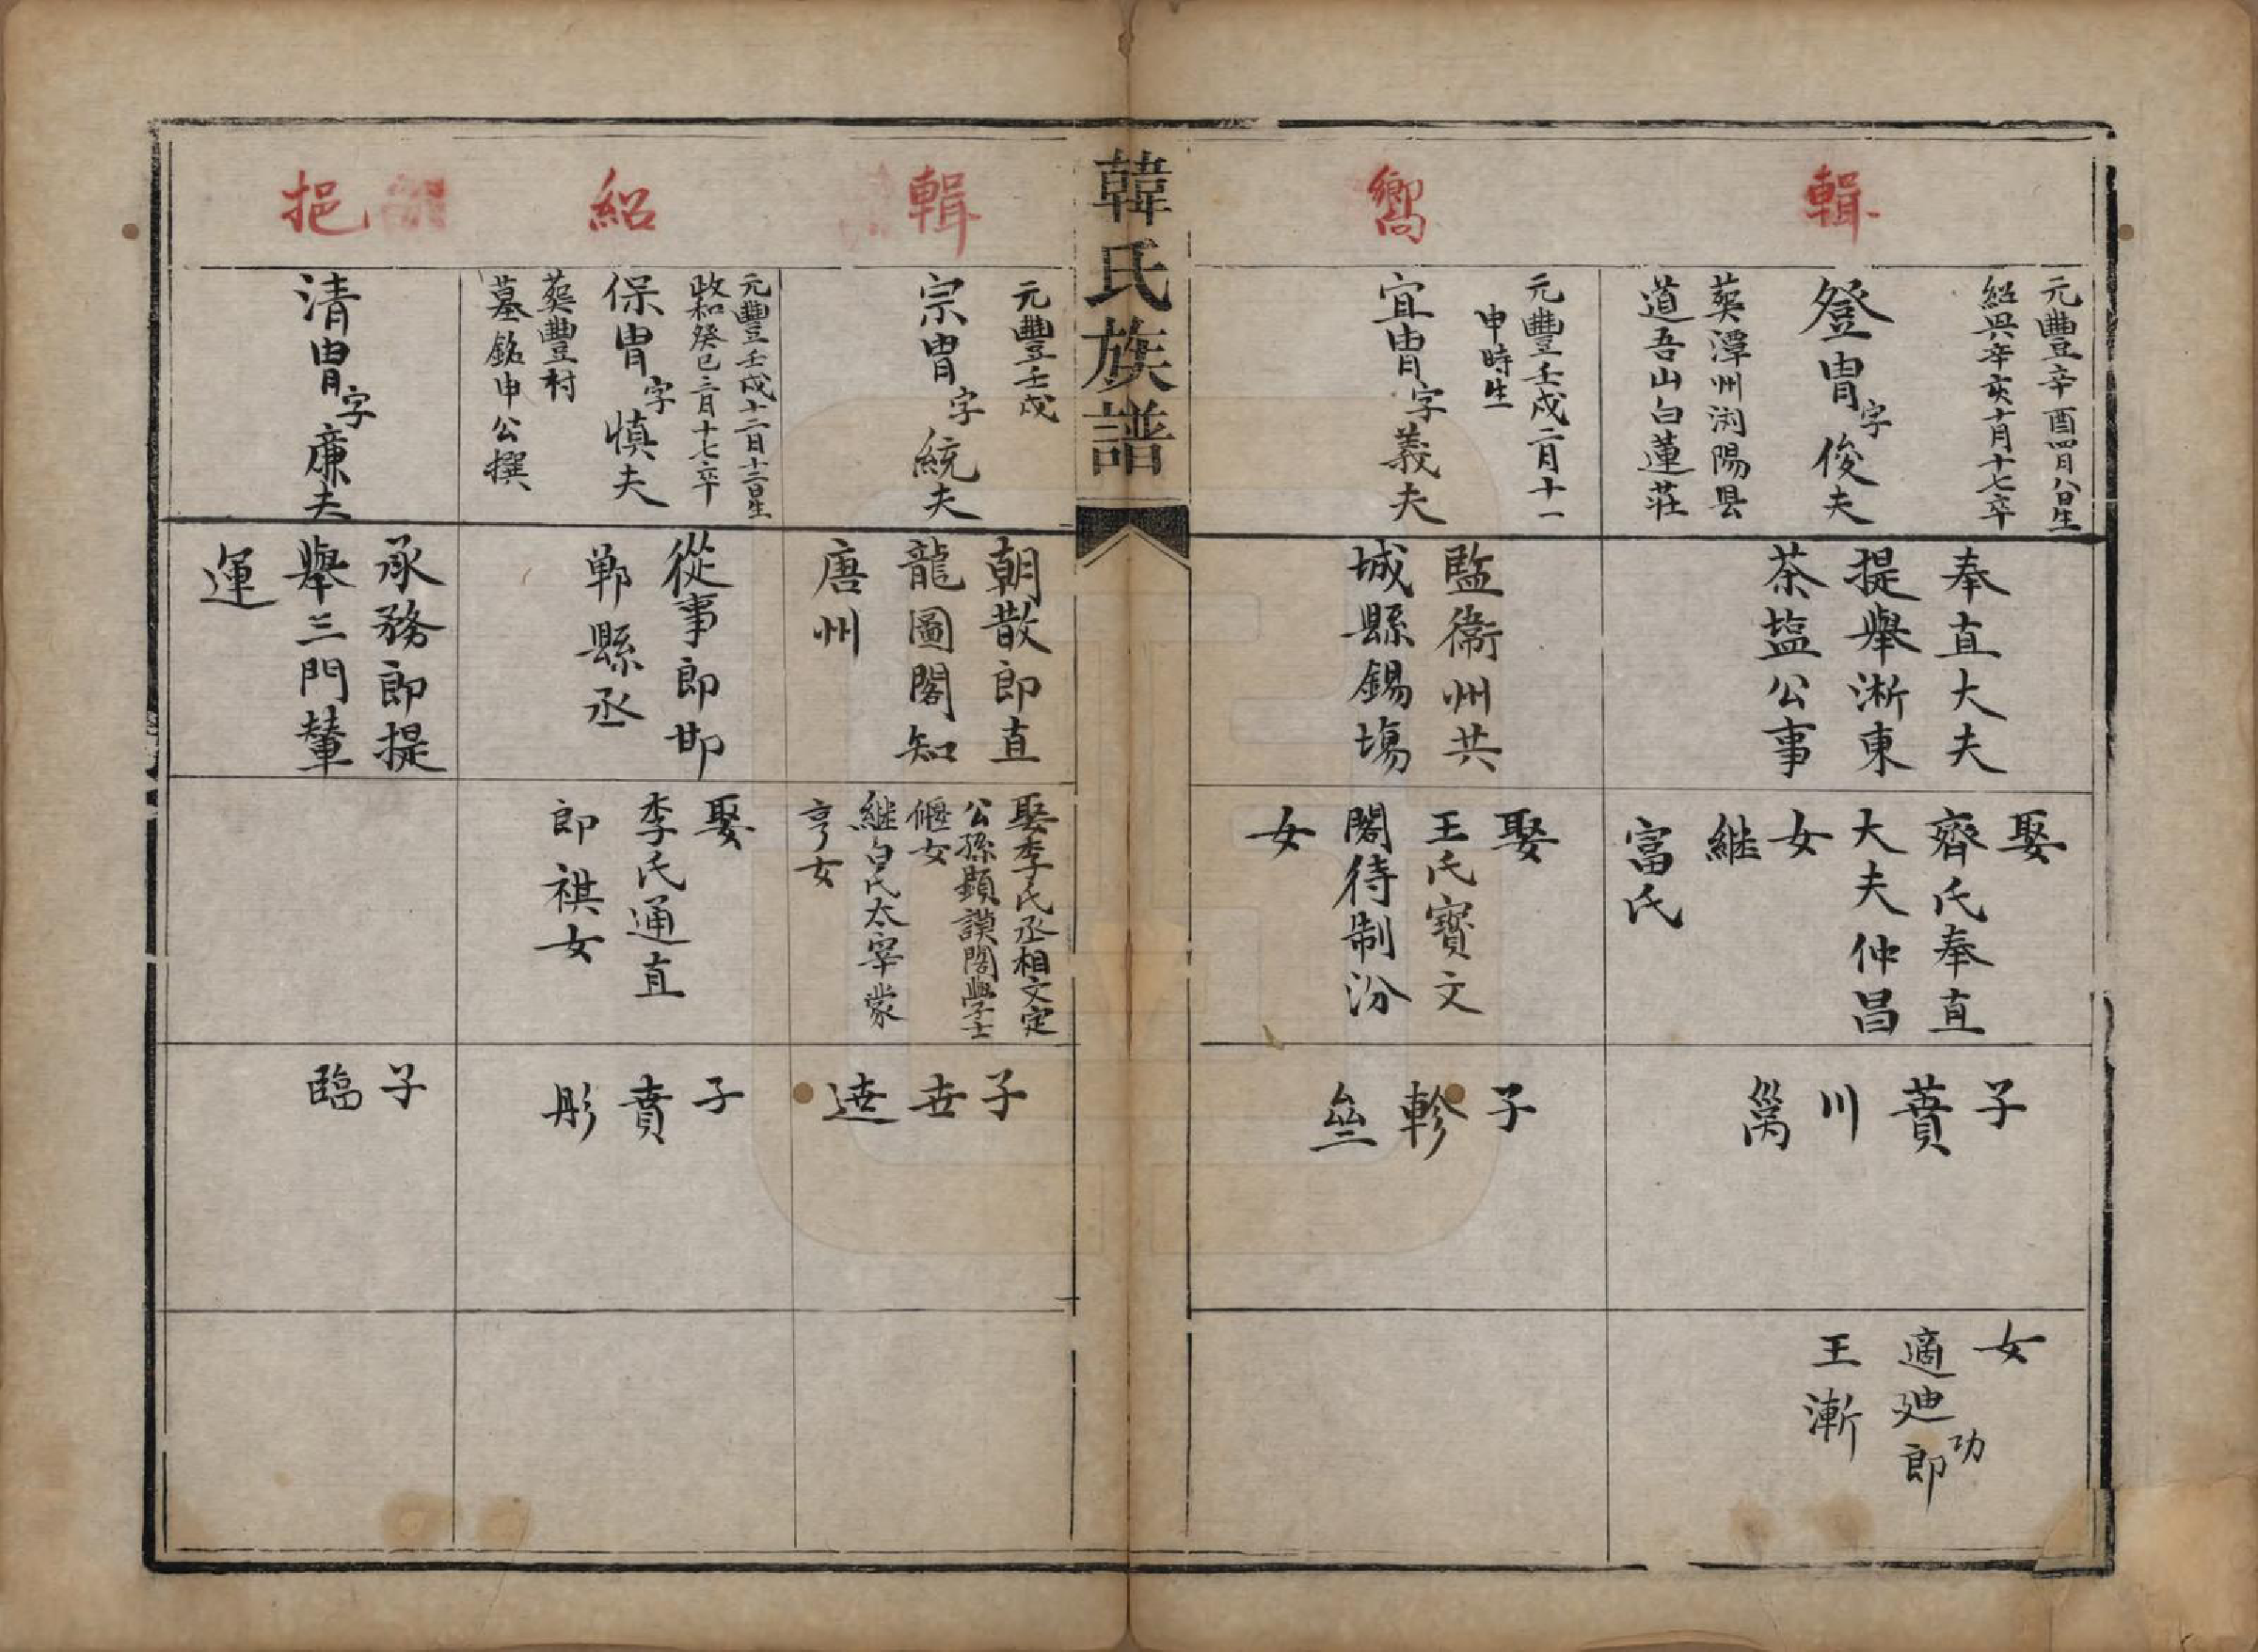 輯
元豐辛酉四月八日生
紹興辛亥十月十七卒
登胄字俊夫
葬潭州浏陽县
道吾山白蓮莊
奉直大夫
提舉淅東
茶塩公事
娶
齊氏奉直
大夫仲昌
女
継
富氏
子
蕡
川
女
適廸功郎
王漸
嚮
元豐壬戌二月十一
申時生
宜胄字義夫
監衞州共
城縣錫塲
娶
王氏寶文
閣待制汾
女
子
軫
亝
韓氏族譜
輯
元豐壬戌
宗胄字統夫
朝散郎直
龍圖閣知
唐州
娶李氏丞相文定
公孫顯謨閣學士
偃女
継白氏太宰蒙
亨女
子
世
逵
紹
元豐壬戌十二日十二日生
政和癸巳三月十七卒
保胄字慎夫
葬豐村
墓銘申公撰
從事郎
郸縣丞
娶
李氏通直
郎祺女
子
賁
彤
挹
清胄字廉夫
承務郎提
舉三門輦
運
子
臨